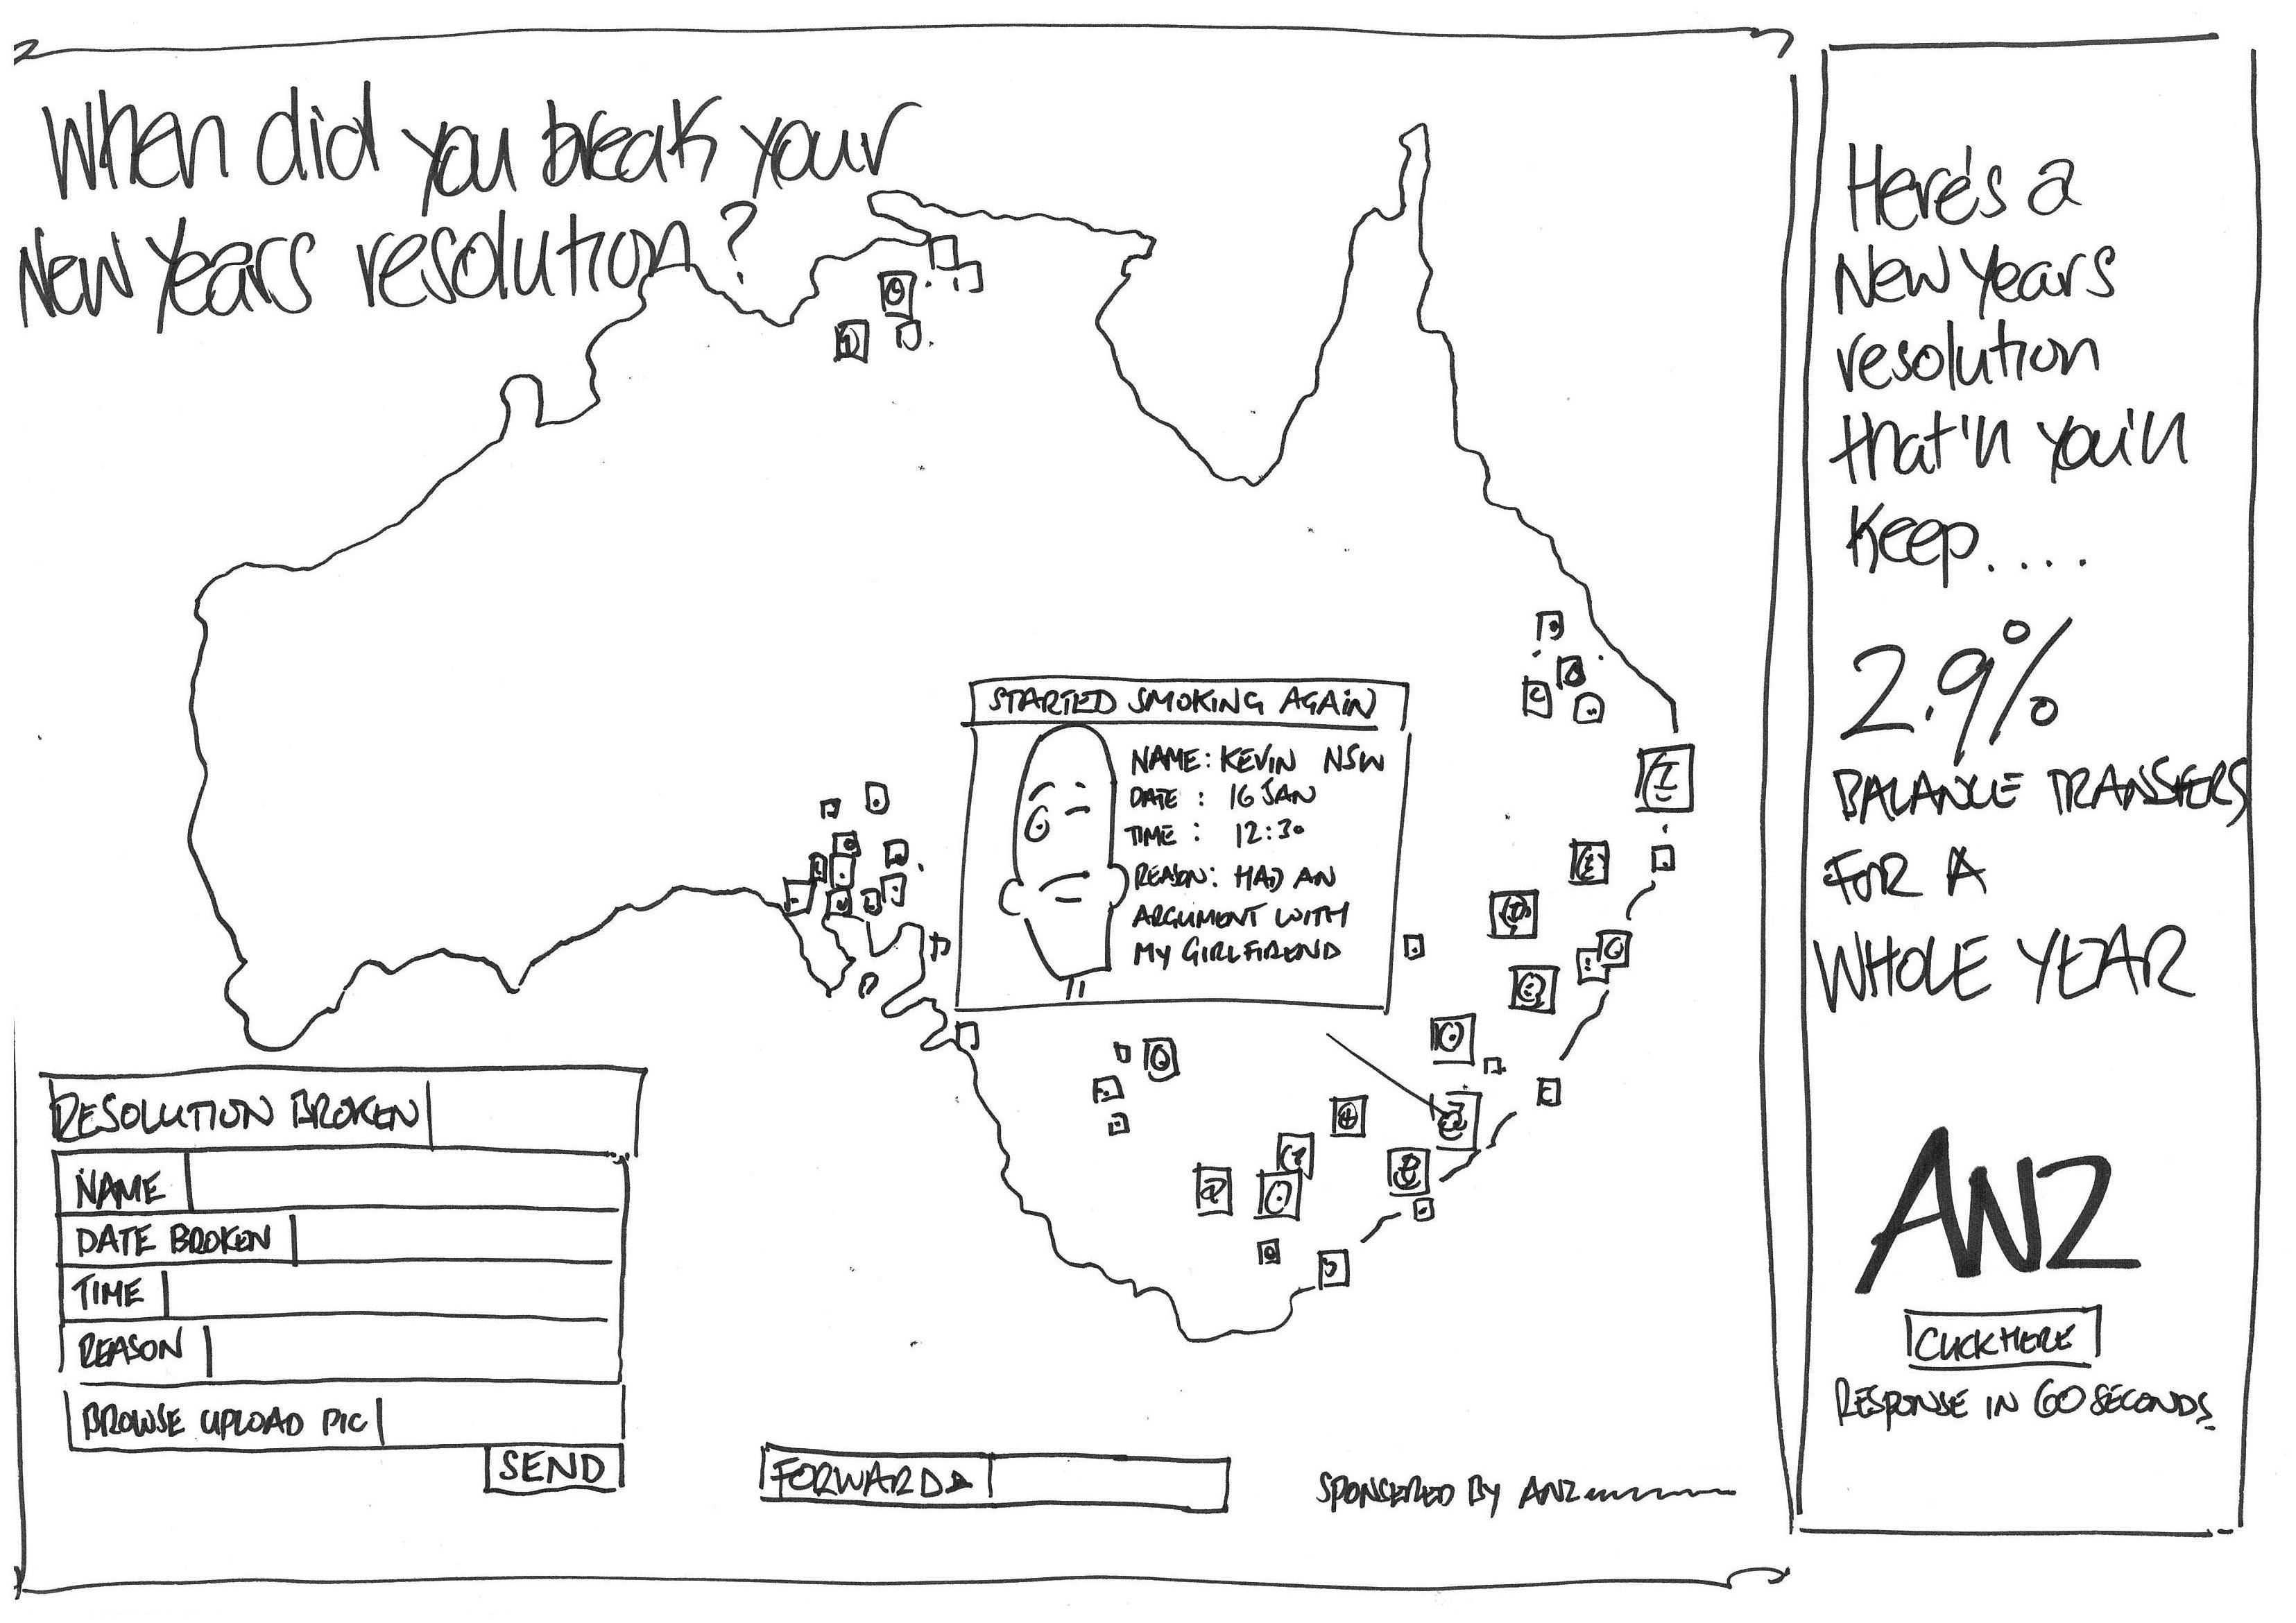 When did you break your
New Years resolution?
STARTED SMOKING AGAIN
NAME: KEVIN NSW
DATE : 16 JAN
TIME : 12:30
REASON: HAD AN
ARGUMENT WITH
MY GIRLFIREND
RESOLUTION BROKEN
NAME
DATE BROKEN
TIME
REASON
BROWSE UPLOAD PIC
SEND
FORWARD
SPONSERED BY ANZ
Here's a
New Years
resolution
that'll you'll
Keep....
2.9%
BALANCE TRANSFERS
FOR A
WHOLE YEAR
ANZ
CLICK HERE
RESPONSE IN 60 SECONDS